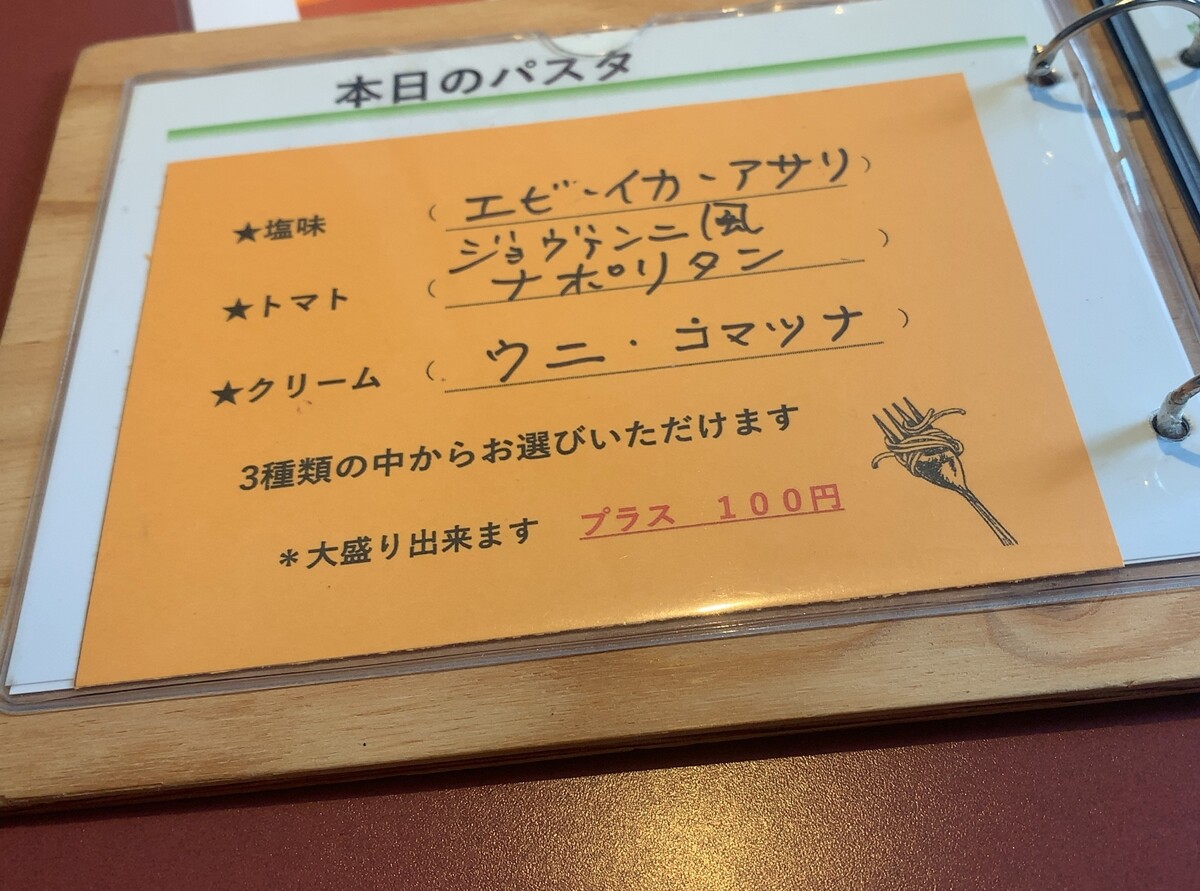 本日のパスタ
★塩味 （エビ・イカ・アサリ）
ジョヴァンニ風
★トマト （ナポリタン）
★クリーム （ウニ・コマツナ）
3種類の中からお選びいただけます
＊大盛り出来ます プラス １００円